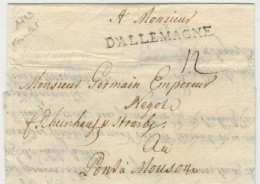 A Monsieur
D'ALLEMAGNE
12
Monsieur Germain Empereur
Negot
Au
Pont à Mousson